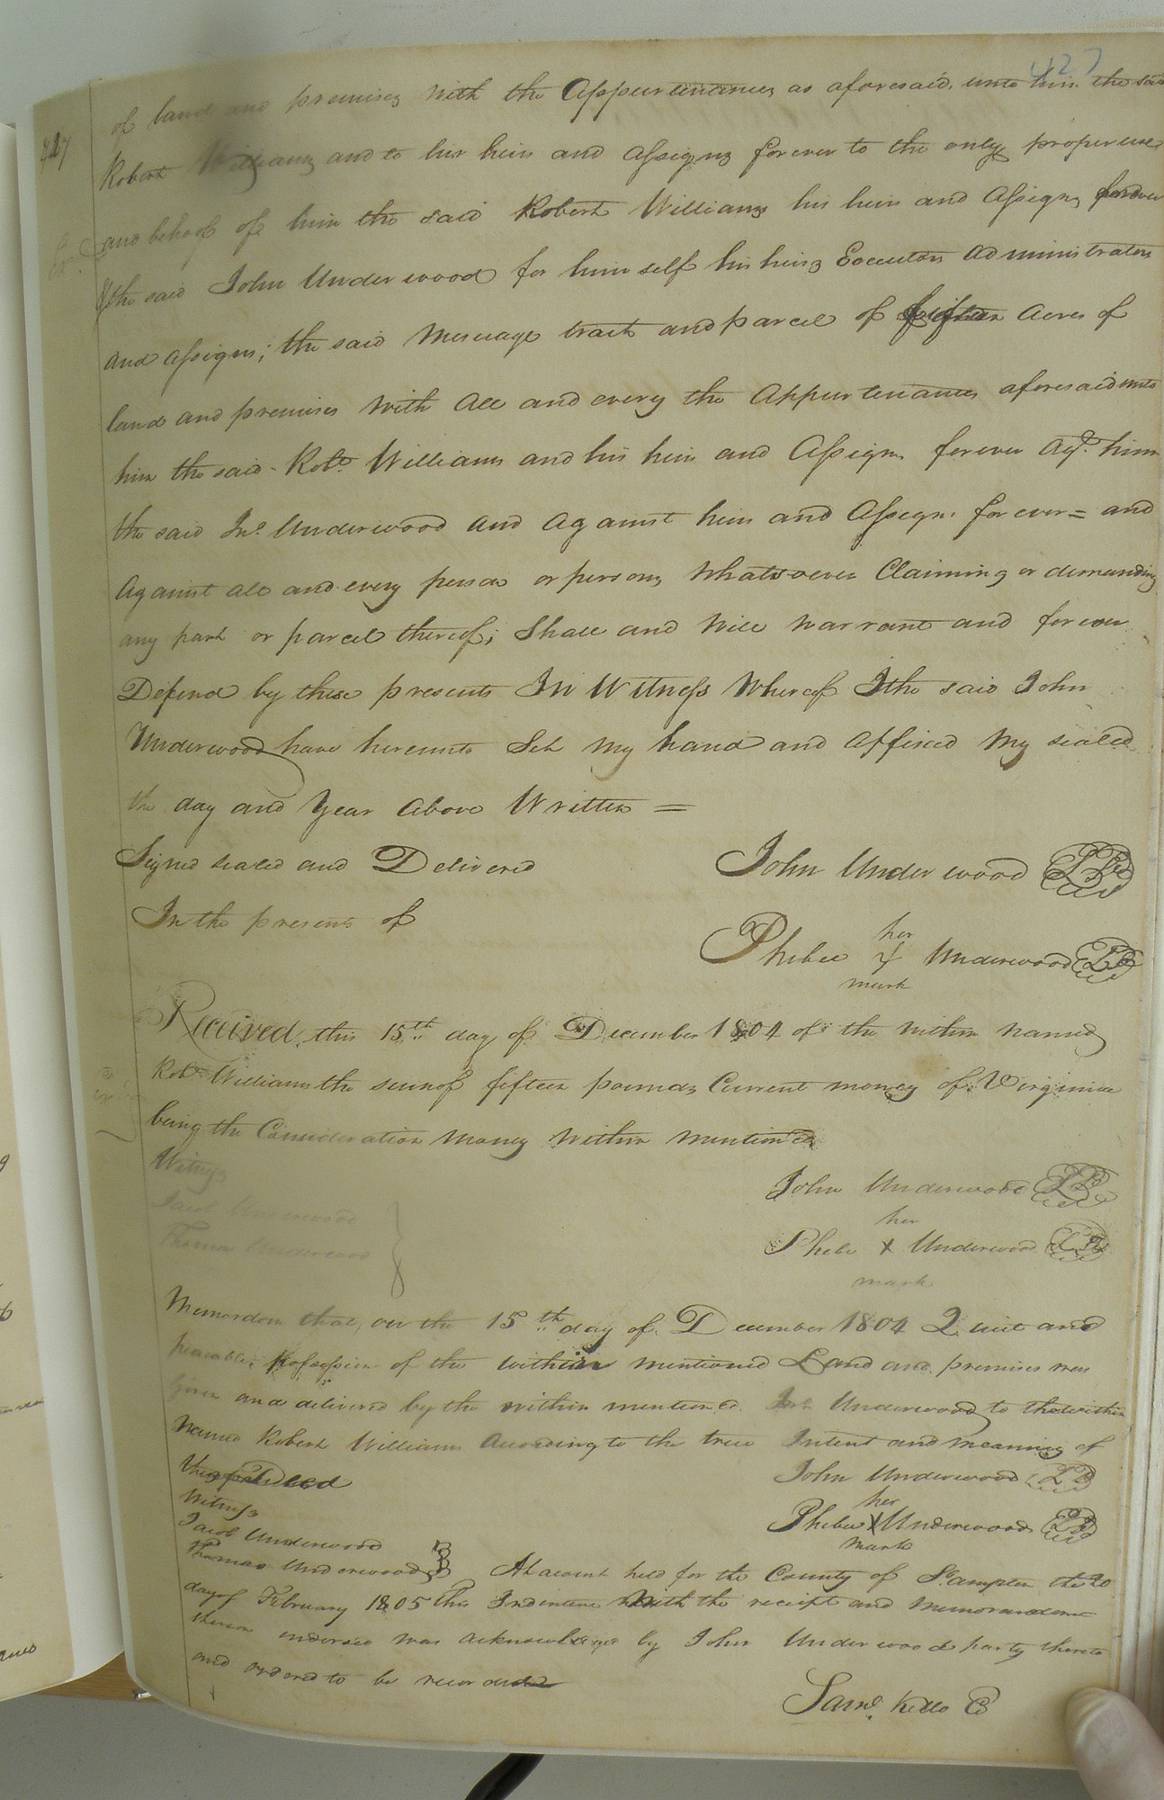 427
of land and premises with the Appurtenances as aforesaid unto him the said
Robert Williams and to his heirs and assigns forever to the only proper use
and behoof of him the said Robert Williams his heirs and Assigns forever
& the said John Underwood for him self his heirs Executors administrators
and assigns; the said Messuage tract and parcel of fifteen acres of
land and premises with all and every the Appurtenances aforesaid unto
him the said Robt. Williams and his heirs and Assigns forever agst. him
the said Jno. Underwood and against heirs and Assigns forever = and
Against all and every person or persons whatsoever Claiming or demanding
any part or parcel thereof; Shall and will warrant and forever
Defend by these presents In Witness Whereof I the said John
Underwood have hereunto Set my hand and affixed my sealed
the day and year above Written =
Signed sealed and Delivered
In the presents of
John Underwood LS
her
Phebee X Underwood LS
mark
Received, this 15th day of December 1804 of the within named
Robt. Williams the sum of fifteen pounds Current money of Virginia
being the Consideration money within mentioned
Witness
Jacob Underwood
Thomas Underwood
John Underwood LS
her
Phebe X Underwood LS
mark
Memordom that, on the 15th day of December 1804 Quiet and
peaceable possession of the within mentioned Land and premises was
given and delivered by the within mentioned Jno. Underwood to the within
named Robert Williams according to the true Intent and meaning of
Deed
John Underwood LS
her
Phebee X Underwood LS
mark
Witness
Jacob Underwood
Thomas Underwood
At a court held for the County of So.ampton the 20
day of February 1805 this Indenture with the receipt and memorandum
thereon endorsed was acknowledged by John Underwood party thereto
and ordered to be recorded
Saml. Kello C